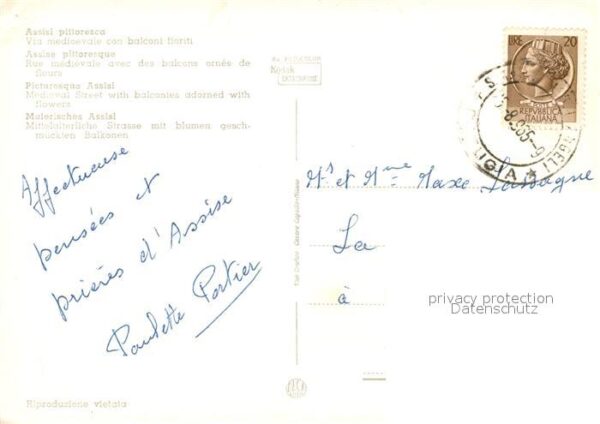 Assisi pittoresca
Via medioevale con balconi fioriti
Assise pittoresque
Rue médievale avec des balcons ornés de
fleurs
Picturesque Assisi
Mediaeval Street with balconies adorned with
flowers
Malerisches Assisi
Mittelalterliche Strasse mit blumen gesch-
mückten Balkonen
Kodak
EKTACHROME
LIRE 20
REPUBBLICA
ITALIANA
Affectueuse
pensées et
prières d'Assise
Paulette Portier
Mrs et Mme Maxe Lassagne
La
à
privacy protection
Datenschutz
Riproduzione vietata